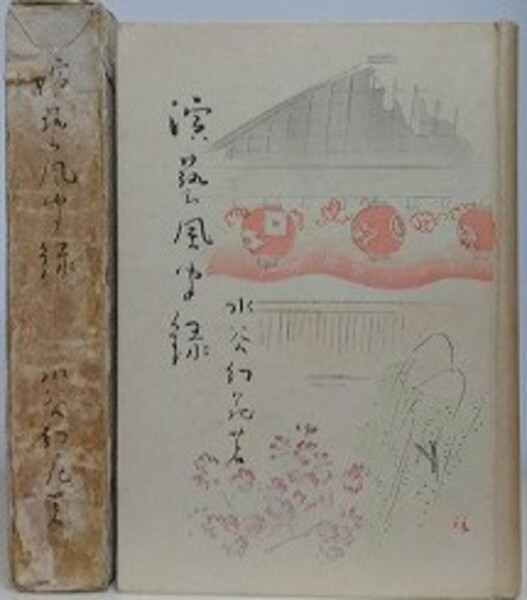 演藝風聞録
水谷幻花著
演藝風聞録
水谷幻花著